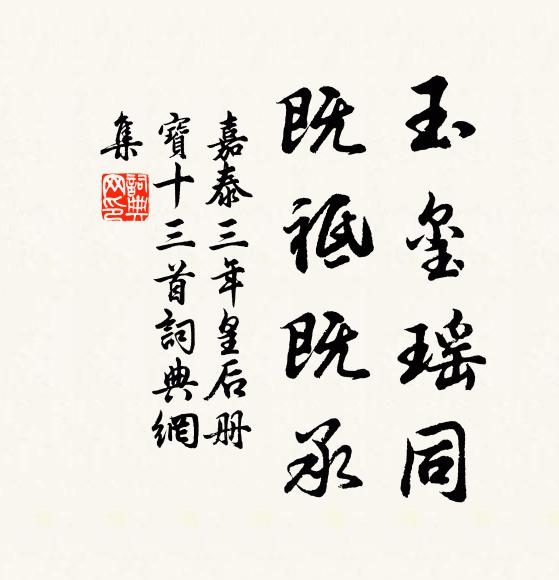 玉玺瑶同
既祗既承
嘉泰三年皇后册
寶十三首詞典網
集
詞典网印